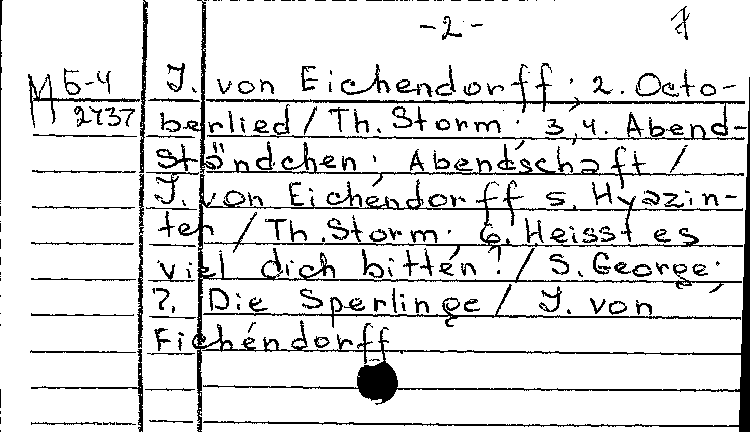 -2-
7
М Б-4
2737
J. von Eichendorff; 2. Octo-
berlied / Th. Storm; 3,4. Abend-
ständchen; Abendschaft /
J. von Eichendorff 5. Hyazin-
ten / Th. Storm; 6. Heisst es
viel dich bitten? / S. George;
7. Die Sperlinge / J. von
Eichendorff